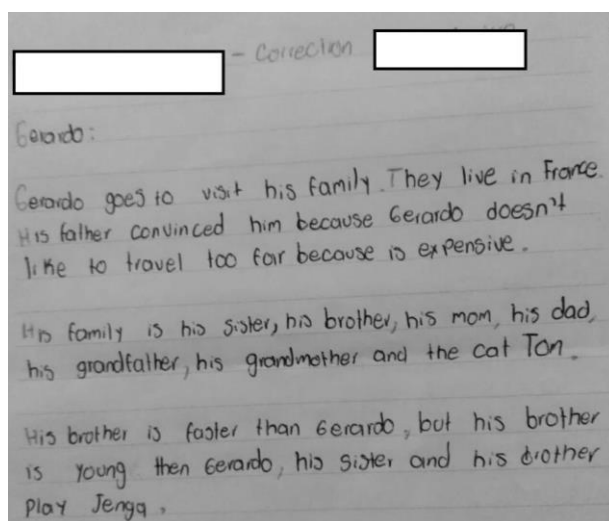 - Correction
Gerardo:
Gerardo goes to visit his family. They live in France.
His father convinced him because Gerardo doesn't
like to travel too far because is expensive.
His family is his sister, his brother, his mom, his dad,
his grandfather, his grandmother and the cat Ton.
His brother is faster than Gerardo, but his brother
is young then Gerardo, his sister and his brother
Play Jenga.